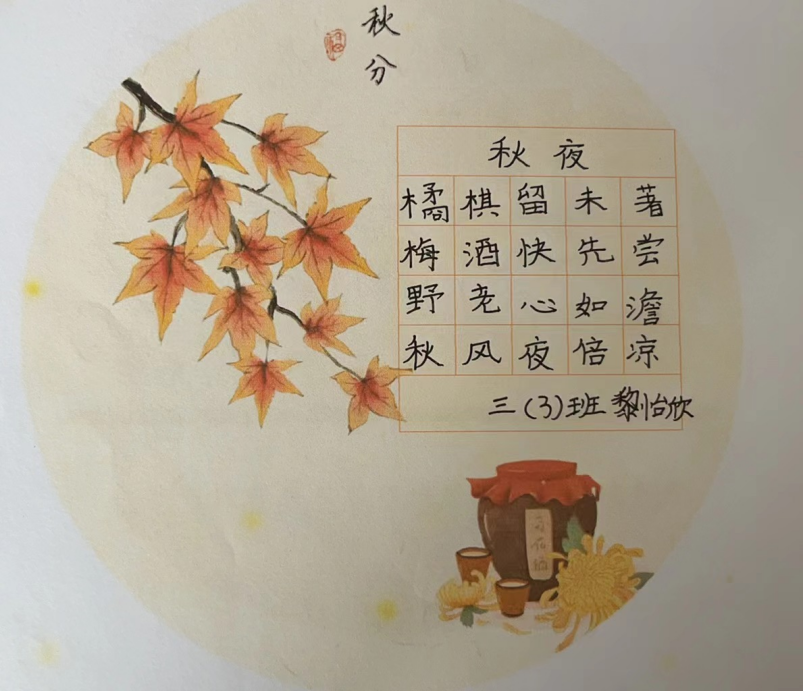 秋分
秋夜
橘棋留未著
梅酒快先尝
野老心如澹
秋风夜倍凉
三(3)班黎怡欣